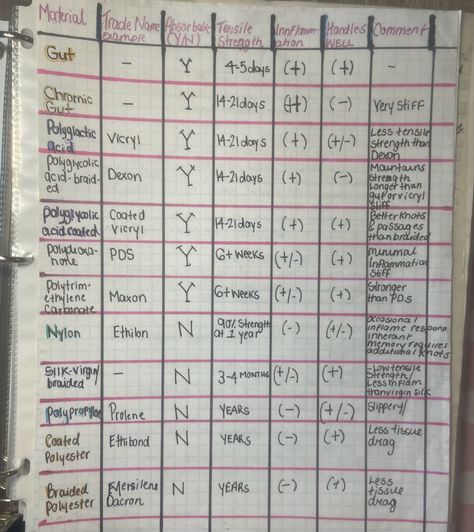 Material Trade Name example Absorbable (Y/N) Tensile Strength Innflammation Handles WELL Comment
Gut - Y 4-5 days (+) (+) -
Chromic Gut - Y 14-21 days (++) (-) Very stiff
Polyglactic acid Vicryl Y 14-21 days (+) (+/-) Less tensile strength than Dexon
Polyglycolic acid-braided Dexon Y 14-21 days (+) (-) Mountains strength longer than gut or vicryl stiff
polyglycolic acid coated Coated Vicryl Y 14-21 days (+) (+) Better knots & passages than braided
PDS Y 6+ weeks (+/-) (+) minimal inflammation stiff
Polytrimethylene Carbonate Maxon Y 6+ weeks (+/-) (+) Stronger than PDS
Nylon Ethilon N 90% strength at 1 year (-) (+/-) occasional inflame respons inherant memory requires additional knots
Silk-virgin/ braided - N 3-4 MONTHS (+/-) (+) -Low tensile strength/ Less inflam than virgin silk
Prolene N YEARS (-) (+/-) Slippery/
Coated Polyester Ethibond N YEARS (-) (+) Less tissue drag
Braided polyester Dacron N YEARS (-) (+) Less tissue drag